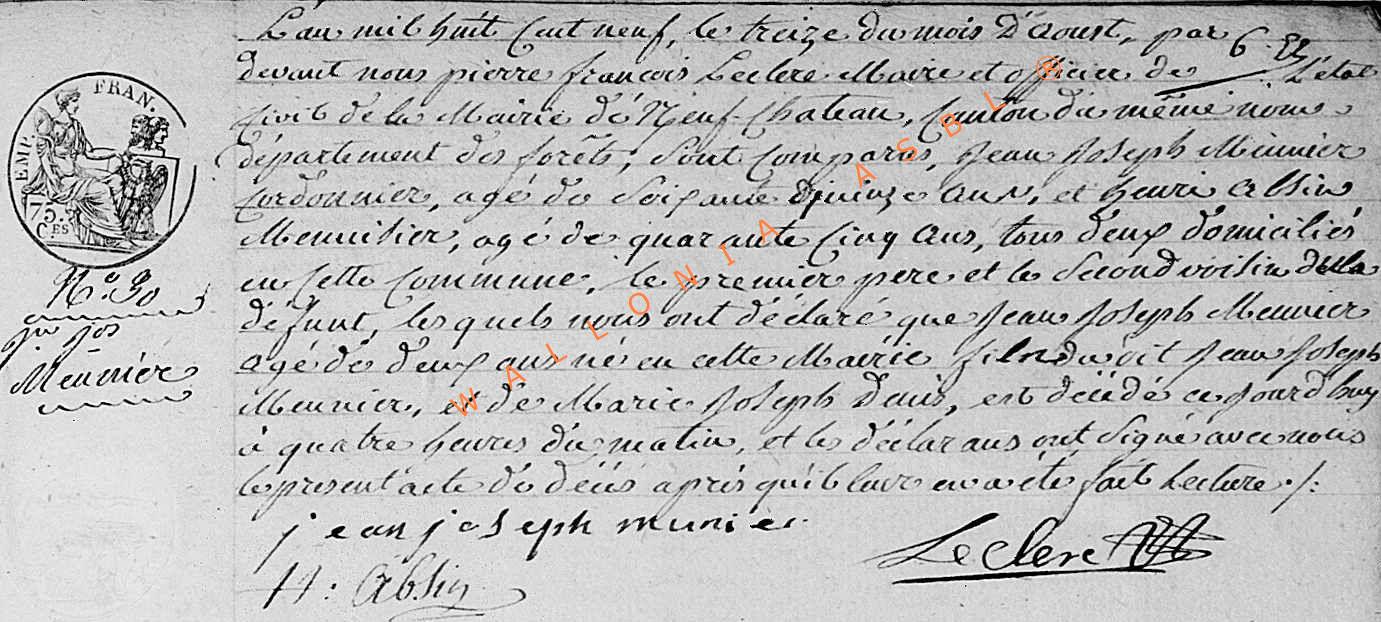 L'an mil huit Cent neuf, le treize du mois D'Aoust, par
devant nous pierre françois Leclere Maire et officier de L'état
Civil de la Mairie de Neuf-Chateau, Canton du même nom
département des forêts, Sont Comparus, Jean Joseph Meunier
Cordonnier, agé de Soixante quinze ans, et henri Absin
Menuisier, agé de quarante Cinq ans, tous deux domiciliés
en Cette Commune, le premier pere et le Second voisin de la
défunt, les quels nous ont déclaré que Jean Joseph Meunier
agé de deux ans né en cette Mairie fils du dit Jean Joseph
Meunier, et de Marie Joseph Denis, est décédé ce jourd'huy
à quatre heures du matin, et les déclarans ont Signé avec nous
le present acte de décés après qu'il leur en a été fait Lecture ./:
jean joseph munier
Leclere
H: Absin
EMP. FRAN.
75.
C.ES
N.o 30
jn jos
Meunier
WALLONIA ASBL ®